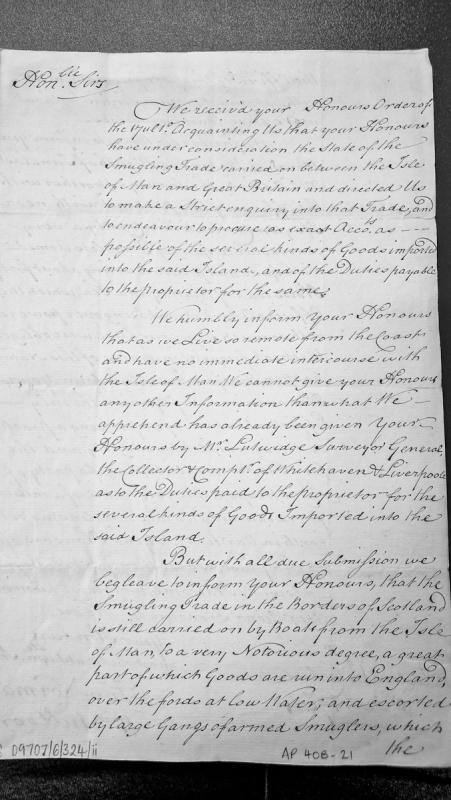 Hon.ble Sirs
We receiv'd your Honours Order of
the 17 ult.o Acquainting Us that your Honours
have under consideration the State of the
Smugling Trade carried on between the Isle
of Man and Great Britain and directed Us
to make a Strict enquiry into that Trade, and
to endeavour to procure as exact Acco.ts as
possible of the several kinds of Goods imported
into the said Island, and of the Duties payable
to the proprietor for the same.
We humbly inform Your Honours
that as we Live so remote from the Coast
and have no immediate intercourse with
the Isle of Man We cannot give your Honours
any other Information than what We
apprehend has already been given Your
Honours by Mr. Lutwidge Surveyor General,
the Collector & Compt.r of Whitehaven & Liverpoole
as to the Duties paid to the proprietor for the
several kinds of Goods Imported into the
said Island.
But with all due Submission we
beg leave to inform Your Honours, that the
Smugling Trade in the Borders of Scotland
is still carried on by Boats from the Isle
of Man, to a very Notorious degree, a great
part of which Goods are run into England,
over the fords at low Water, and escorted
by large Gangs of armed Smuglers, which
the
09707/6/324/ii
AP 40B-21